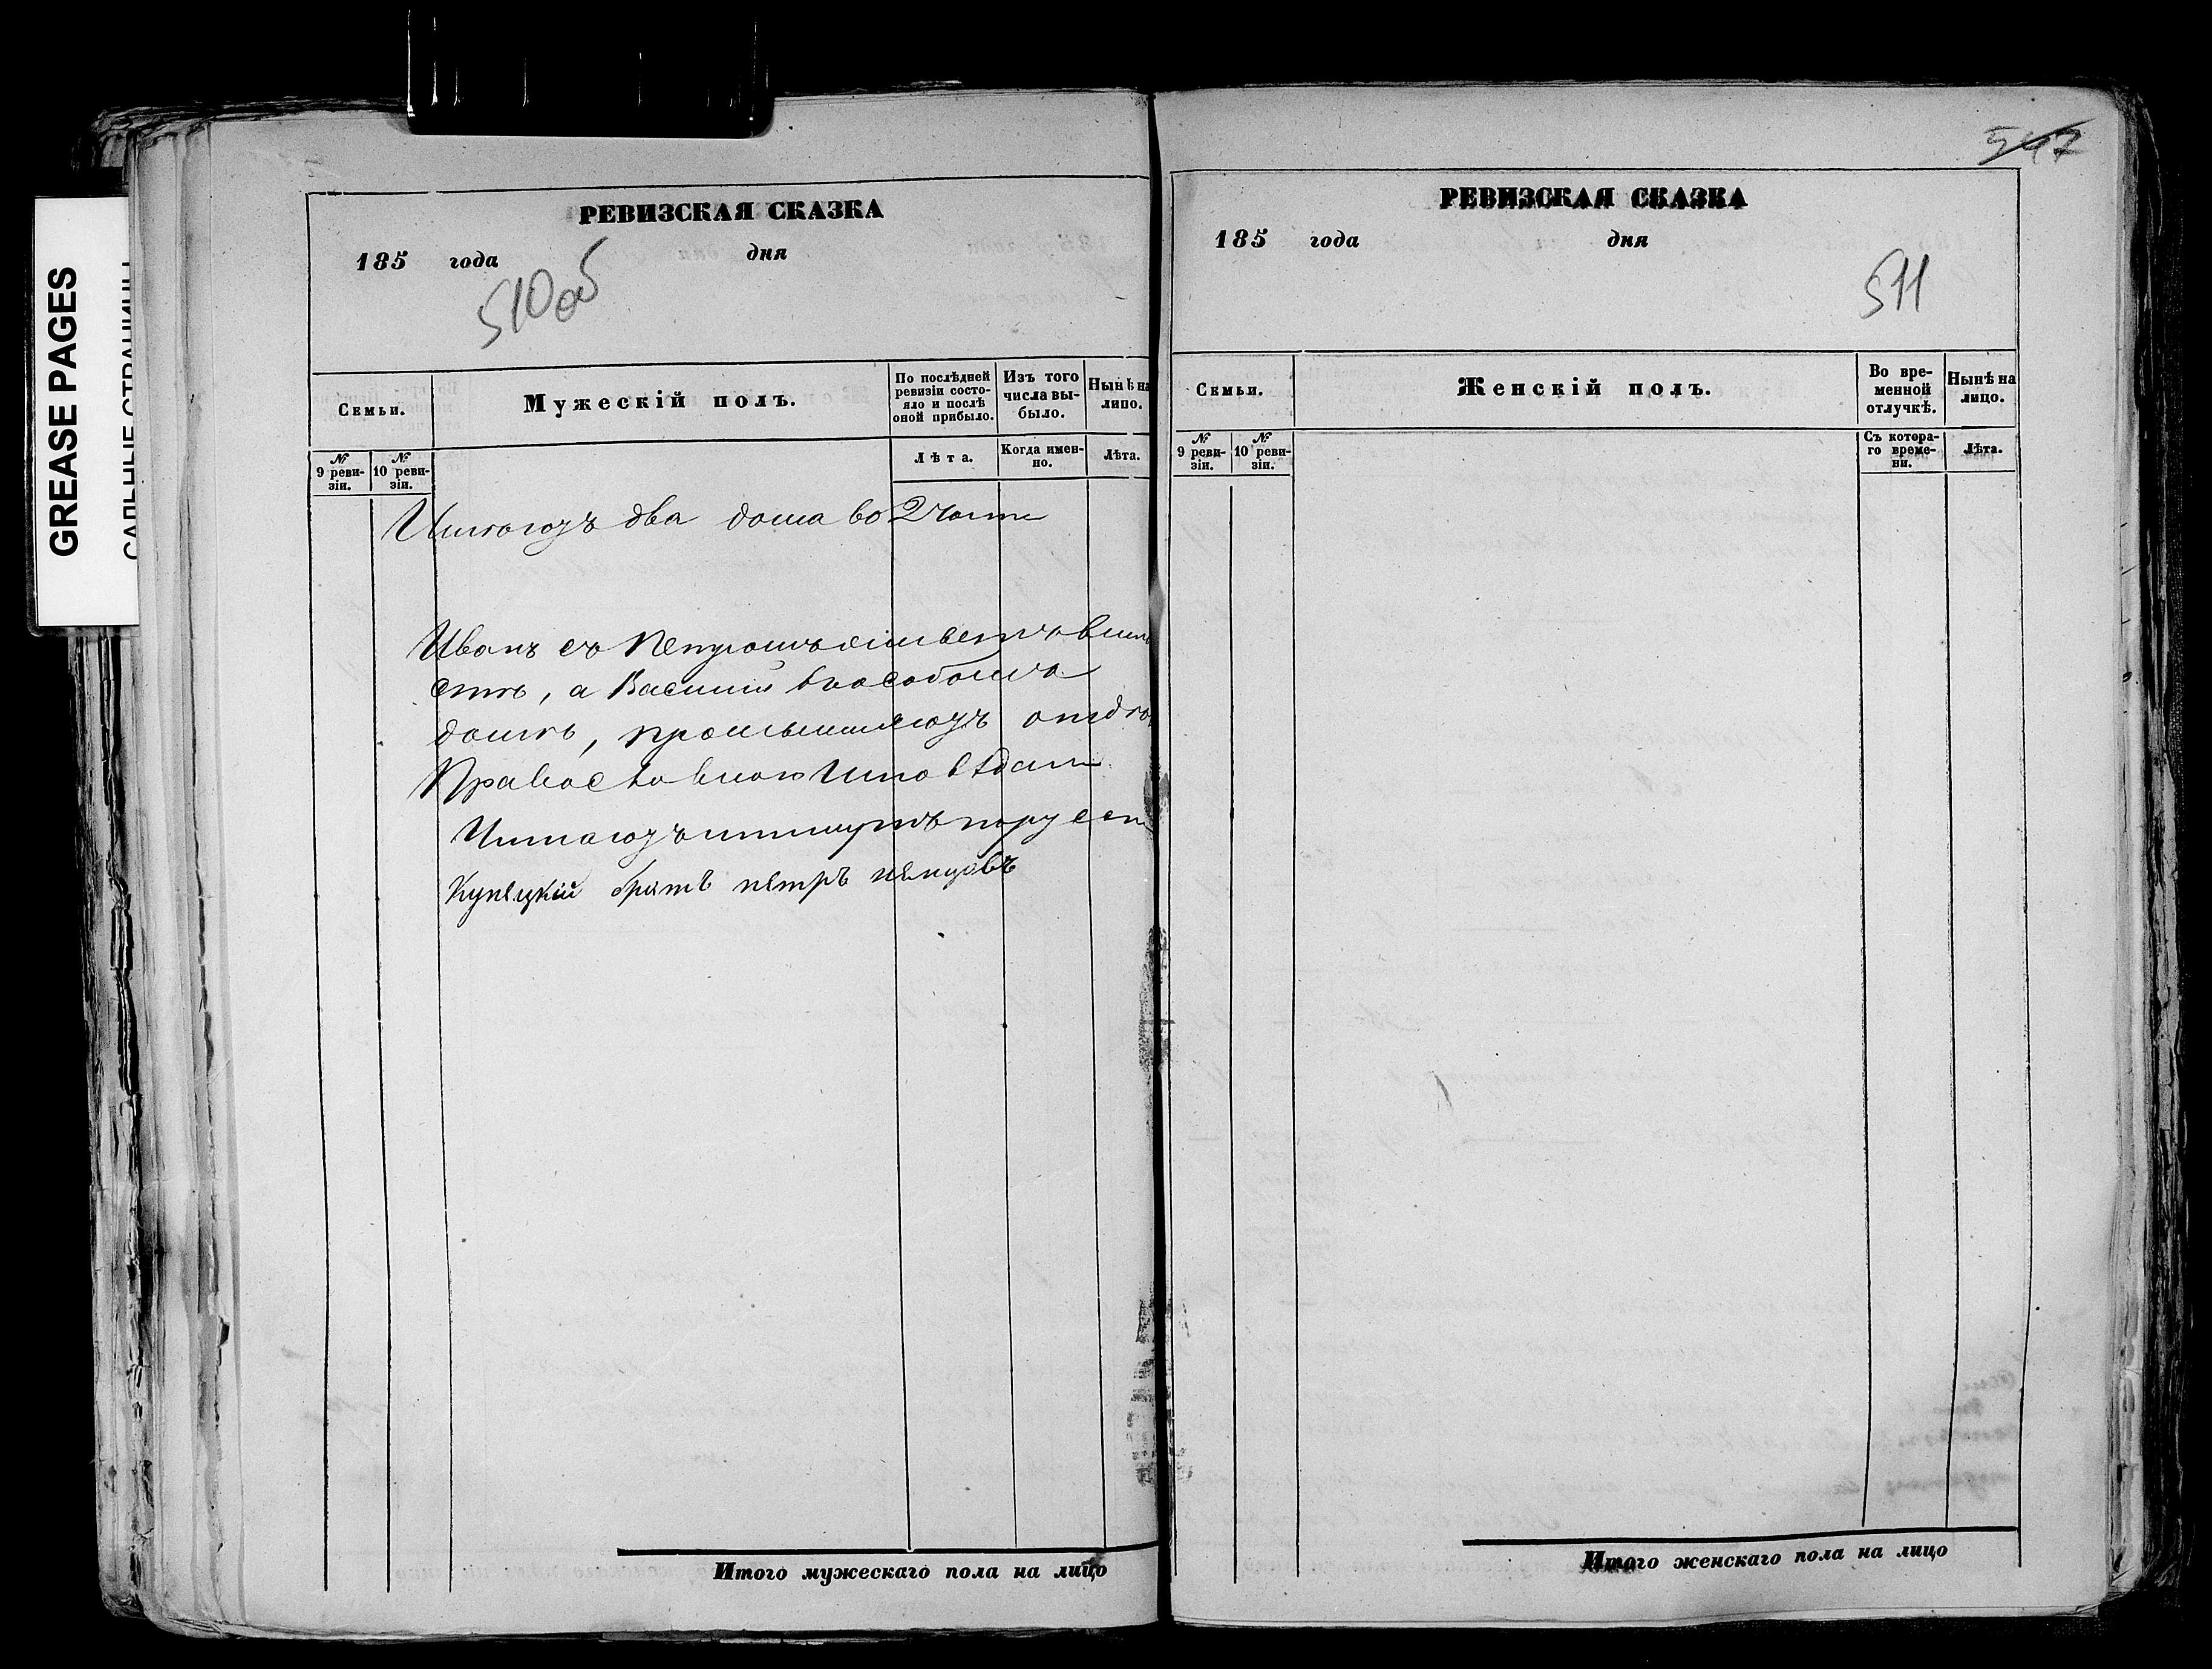 GREASE PAGES
САЛЬНЫЕ СТРАНИЦЫ
РЕВИЗСКАЯ СКАЗКА
185 года дня
510об
Семьи.
Мужескій полъ.
По послѣдней ревизіи состояло и послѣ оной прибыло.
Изъ того числа выбыло.
Нынѣ на лицо.
№ 9 ревизіи.
№ 10 ревизіи.
Лѣта.
Когда именно.
Лѣта.
Имѣютъ два дома во 2 части
Иванъ съ Петромъ
а Василий в особомъ
домѣ, промышляютъ
Православнаго Исповѣдания
Читаютъ и пишутъ по русски
Купецкій братъ петръ
Итого мужескаго пола на лицо
547
РЕВИЗСКАЯ СКАЗКА
185 года дня
511
Семьи.
Женскій полъ.
Во временной отлучкѣ.
Нынѣ на лицо.
№ 9 ревизіи.
№ 10 ревизіи.
Съ котораго времени.
Лѣта.
Итого женскаго пола на лицо